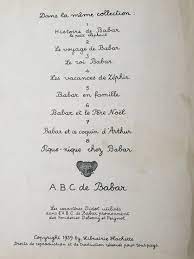 Dans la même collection
1
Histoire de Babar
le petit éléphant
2
Le voyage de Babar
3
Le roi Babar
4
Les vacances de Zéphir
5
Babar en famille
6
Babar et le Père Noël
7
Babar et ce coquin d'Arthur
8
Pique-nique chez Babar
A.B.C de Babar
Les caractères Didot utilisés
dans l'A B C de Babar proviennent des
Fonderies Deberny et Peignot
Copyright 1939 by Librairie Hachette
Droits de reproduction et de traduction réservés pour tous pays